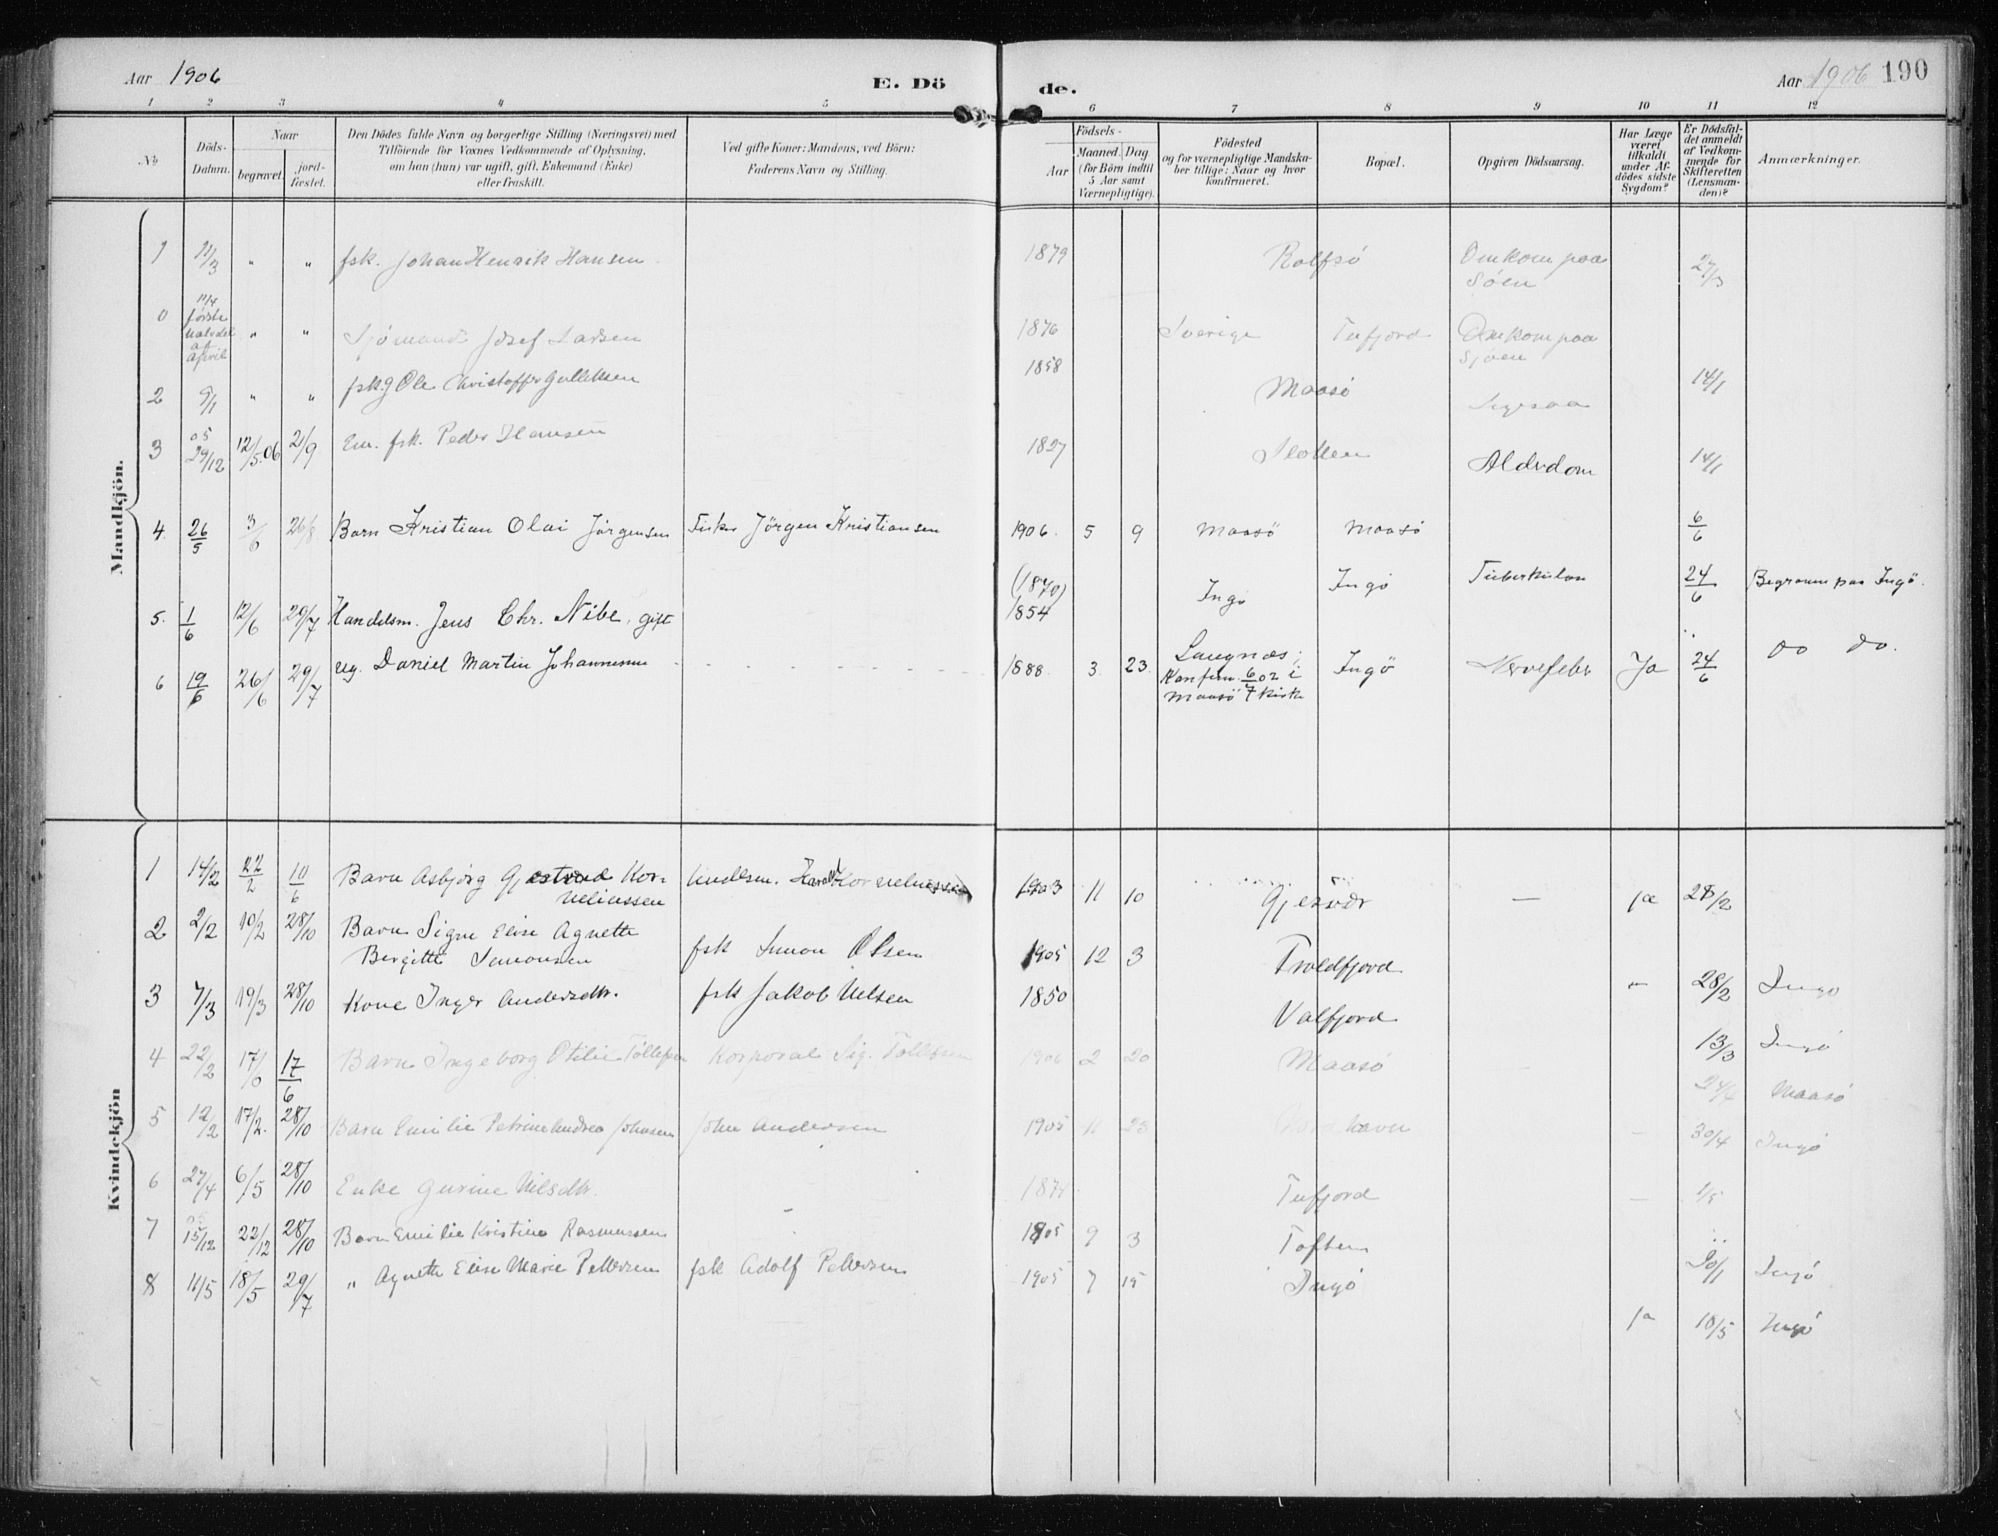 Aar 1906
E. Dö
de.
Aar 1906 190
1 2 3 4 5 6 7 8 9 10 11 12
No
Döds-
Datum.
Naar
begravet.
jord-
fæstet.
Den Dödes fulde Navn og borgerlige Stilling (Næringsvei) med
Tilföiende for Voxnes Vedkommende af Oplysning,
om han (hun) var ugift, gift, Enkemand (Enke)
eller fraskilt.
Ved gifte Koner: Mandens, ved Börn:
Faderens Navn og Stilling.
Födsels-
Aar
Maaned. Dag
(for Börn indtil
5 Aar samt
Værnepligtige).
Födested
og for værnepligtige Mandska-
ber tillige: Naar og hvor
konfirmeret.
Bopæl.
Opgiven Dödsaarsag.
Har Læge
været
tilkaldt
under Af-
dödes sidste
Sygdom?
Er Dödsfal-
det anmeldt
af Vedkom-
mende for
Skifteretten
(Lensman-
den)?
Anmærkninger.
Mandkjön.
1 11/3 " " fsk. Johan Henrik Hansen 1879 Rolfsö Omkom paa 27/3
Söen
0 11/4 første halvdel af april " " Sjömand Josef Larsen 1876 Sverige Tufjord Omkom paa
Sjöen
2 9/1 " " fsk. Ole Christoffer 1858 Maasö 14/1
3 05 29/12 12/5.06 21/9 Em. fsk. Peder Hansen 1827 Alderdom 14/1
4. 26/5 3/6 26/8 Barn Kristian Olai Jørgensen Fisker Jörgen Kristiansen 1906. 5 9 Maasö Maasö 6/6
5. 1/6 12/6 29/7 Handelsm. Jens Chr. Nibe, gift (1870) 1854 Ingö Ingö Tuberkulose 24/6 Begraven paa Ingö.
6 19/6 26/6 29/7 ug. Daniel Martin Johannesen 1888 3. 23. Langnæs; Ingö Nervefeber Ja 24/6 do do.
Konfirm. 6/7 02 i
Maasö Kirke
Kvindekjön
1 14/2 22/2 10/6 Barn Asbjörg Kor- Korneliussen 1903 11 10 Gjesvær — ja 28/2
neliussen
2 2/2 10/2 28/10 Barn Signe Elise Agnethe
Birgitte Simonsen fsk Simon Olsen 1905 12 3 Troldfjord 28/2 Ingö
3 7/3 19/3 28/10 Kone Inger Andersdtr. fsk Jakob Nilsen 1850 Valfjord 13/3 Ingö
4 22/2 17/6 17/6 Barn Ingeborg Otilie Tollefsen Korporal Sig. Tollefsen 1906 2 20 Maasö 24/4 Maasö
5 12/2 17/2. 28/10 Barn Emilie Petrine Andrea Johnsen John Andersen 1905 11 23 30/4 Ingö
6 27/4 6/5 28/10 Enke Gurine Nilsdtr. Tufjord — 1/5
7 05 15/12 22/12 28/10 Barn Emilie Kristine Rasmussen - 1905 9 3 Toften 20/1 Ingö
8 11/5 18/5 29/7 " Agnethe Elise Marie Pettersen fsk Adolf Pettersen 1905 7 15 Ingö ja 18/5 Ingö